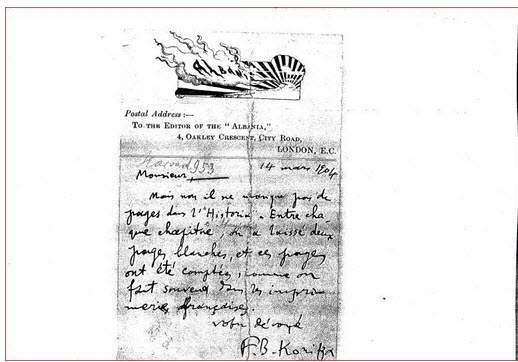 ALBANIA
Postal Address :—
TO THE EDITOR OF THE "ALBANIA,"
4, OAKLEY CRESCENT, CITY ROAD,
LONDON, E.C.
Harvard 953
14 mars 1904
Monsieur,
Mais non il ne manque pas de
pages dans l'"Historia". Entre cha
que chapitre, on a laissé deux
pages blanches, et ces pages
ont été comptées, comme on
fait souvent dans les imprim
meries françaises.
votre dévoué
F.B. Konitza